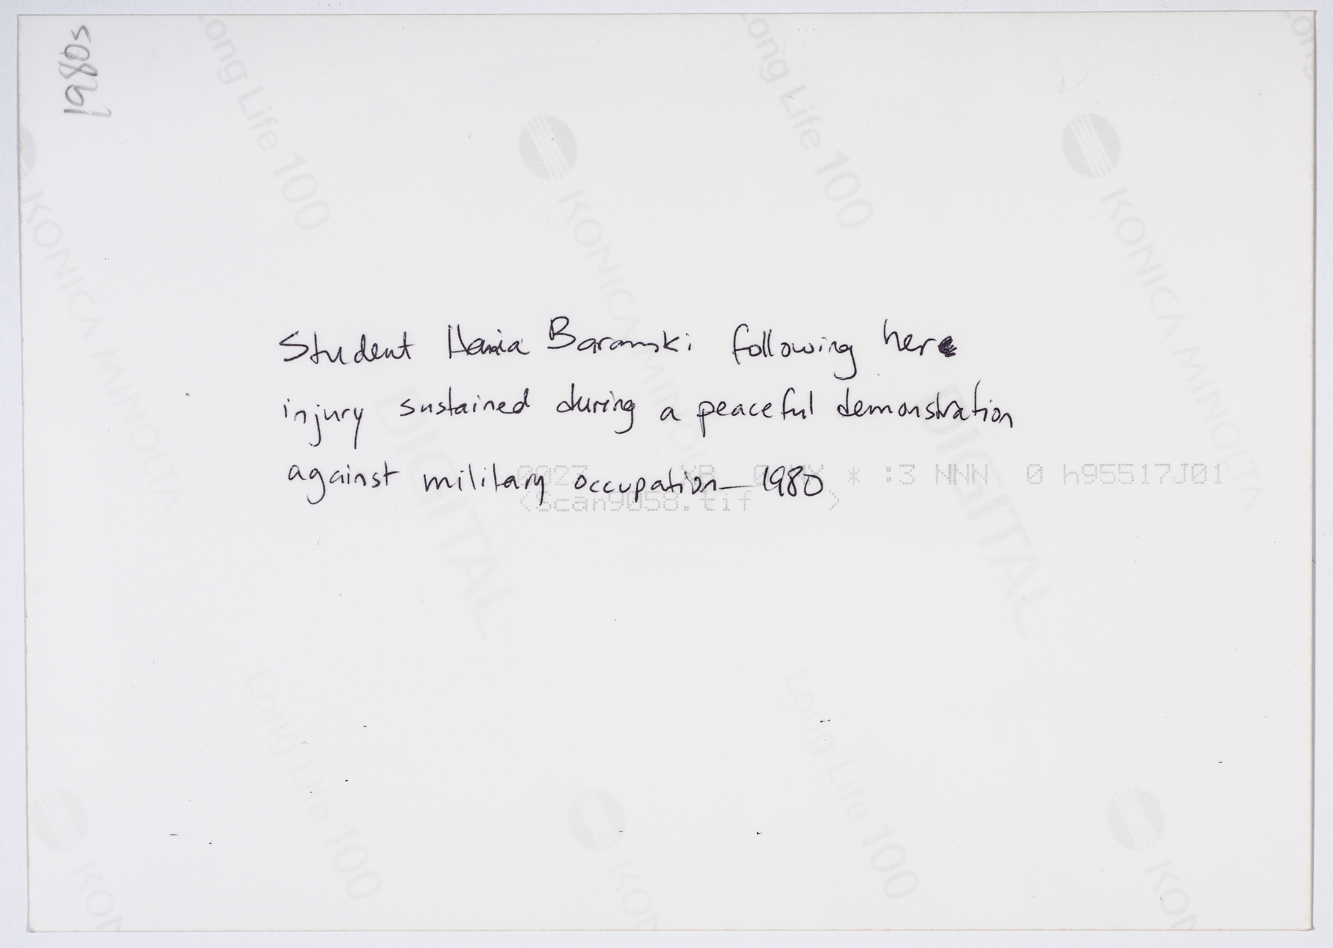 1980s
Student Hania Baramki following her
injury sustained during a peaceful demonstration
against military occupation—1980
* :3 NNN 0 h95517J01
(Scan9058.tif )
Long Life 100
KONICA MINOLTA
DIGITAL
Long Life 100
KONICA MINOLTA
DIGITAL
KONICA MINOLTA
Long Life 100
Long Life 100